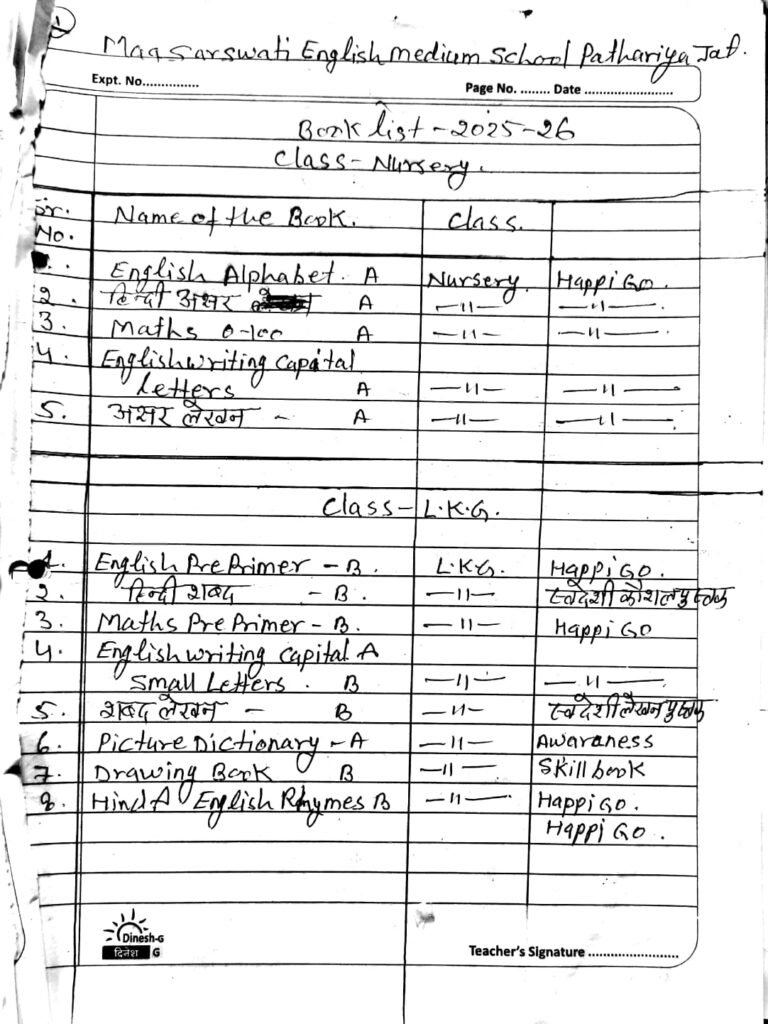 1
Maa Sarswati English medium School Pathariya Jat.
Expt. No............... Page No. ........ Date ........................
Book list - 2025-26
Class - Nursery.
Sr. No. Name of the Book. Class.
1. English Alphabet. A Nursery. Happi Go.
2. हिन्दी अक्षर A —〃— —〃—
3. Maths 0-100 A —〃— —〃—
4. English writing Capital
Letters A —〃— —〃—
5. अक्षर लेखन - A —〃— —〃—
Class - L.K.G.
1. English Pre Primer - B. L.K.G. Happi Go.
2. हिन्दी शब्द - B. —〃— स्वदेशी कौशल पुस्तक
3. Maths Pre Primer - B. —〃— Happi Go
4. English writing Capital A
Small Letters. B —〃— —〃—
5. शब्द लेखन - B —〃— स्वदेशी लेखन पुस्तक
6. Picture Dictionary - A —〃— Awaraness
7. Drawing Book B —〃— Skill book
8. Hind A English Rhymes B —〃— Happi Go.
Happi Go.
Dinesh-G
दिनेश G
Teacher's Signature ........................